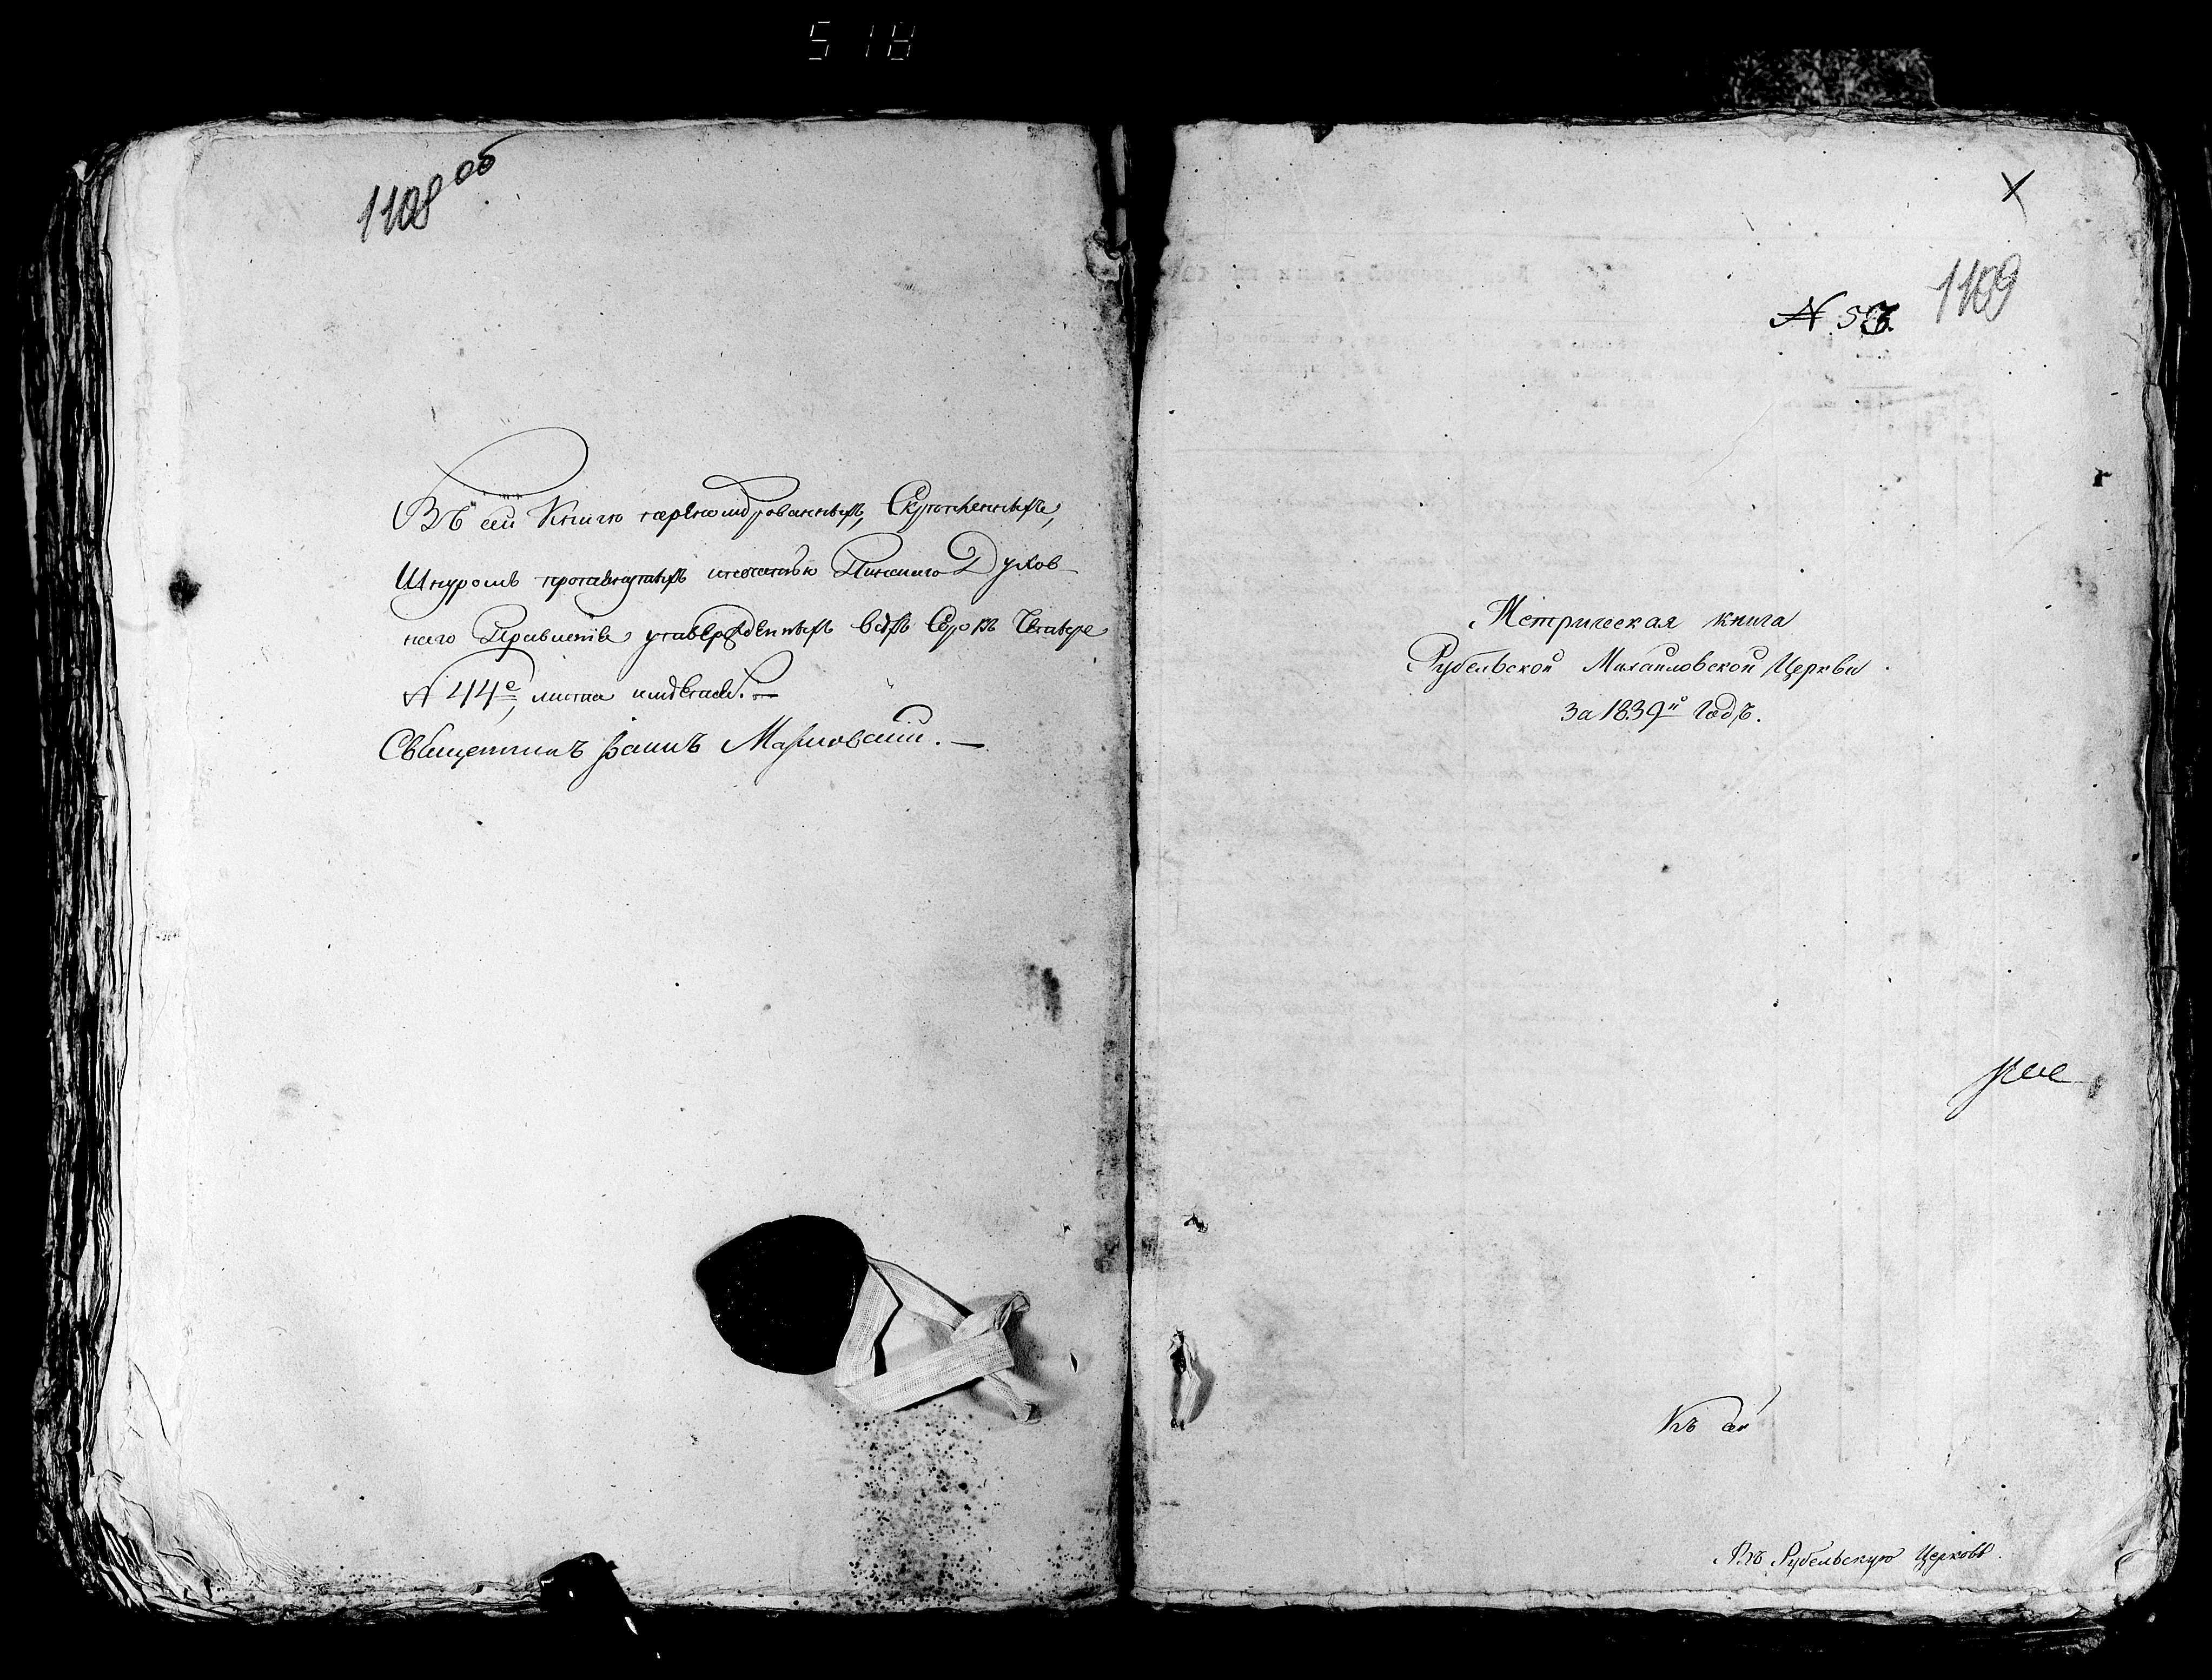 518
1108 об
Въ сей Книги перенумерованныхъ, Скрепленныхъ,
Шнуромъ протянутыхъ печатью Пинского Духов
наго Правленія утвержденныхъ всѣхъ Сорокъ Четыре
№ 44е, листа имѣется. —
Священникъ Іоаннъ
X
1109
№ 57.
Метрическая книга
Рубельской Михайловской Церкви
за 1839й Годъ.
Къ
Въ Рубельскую Церковь.